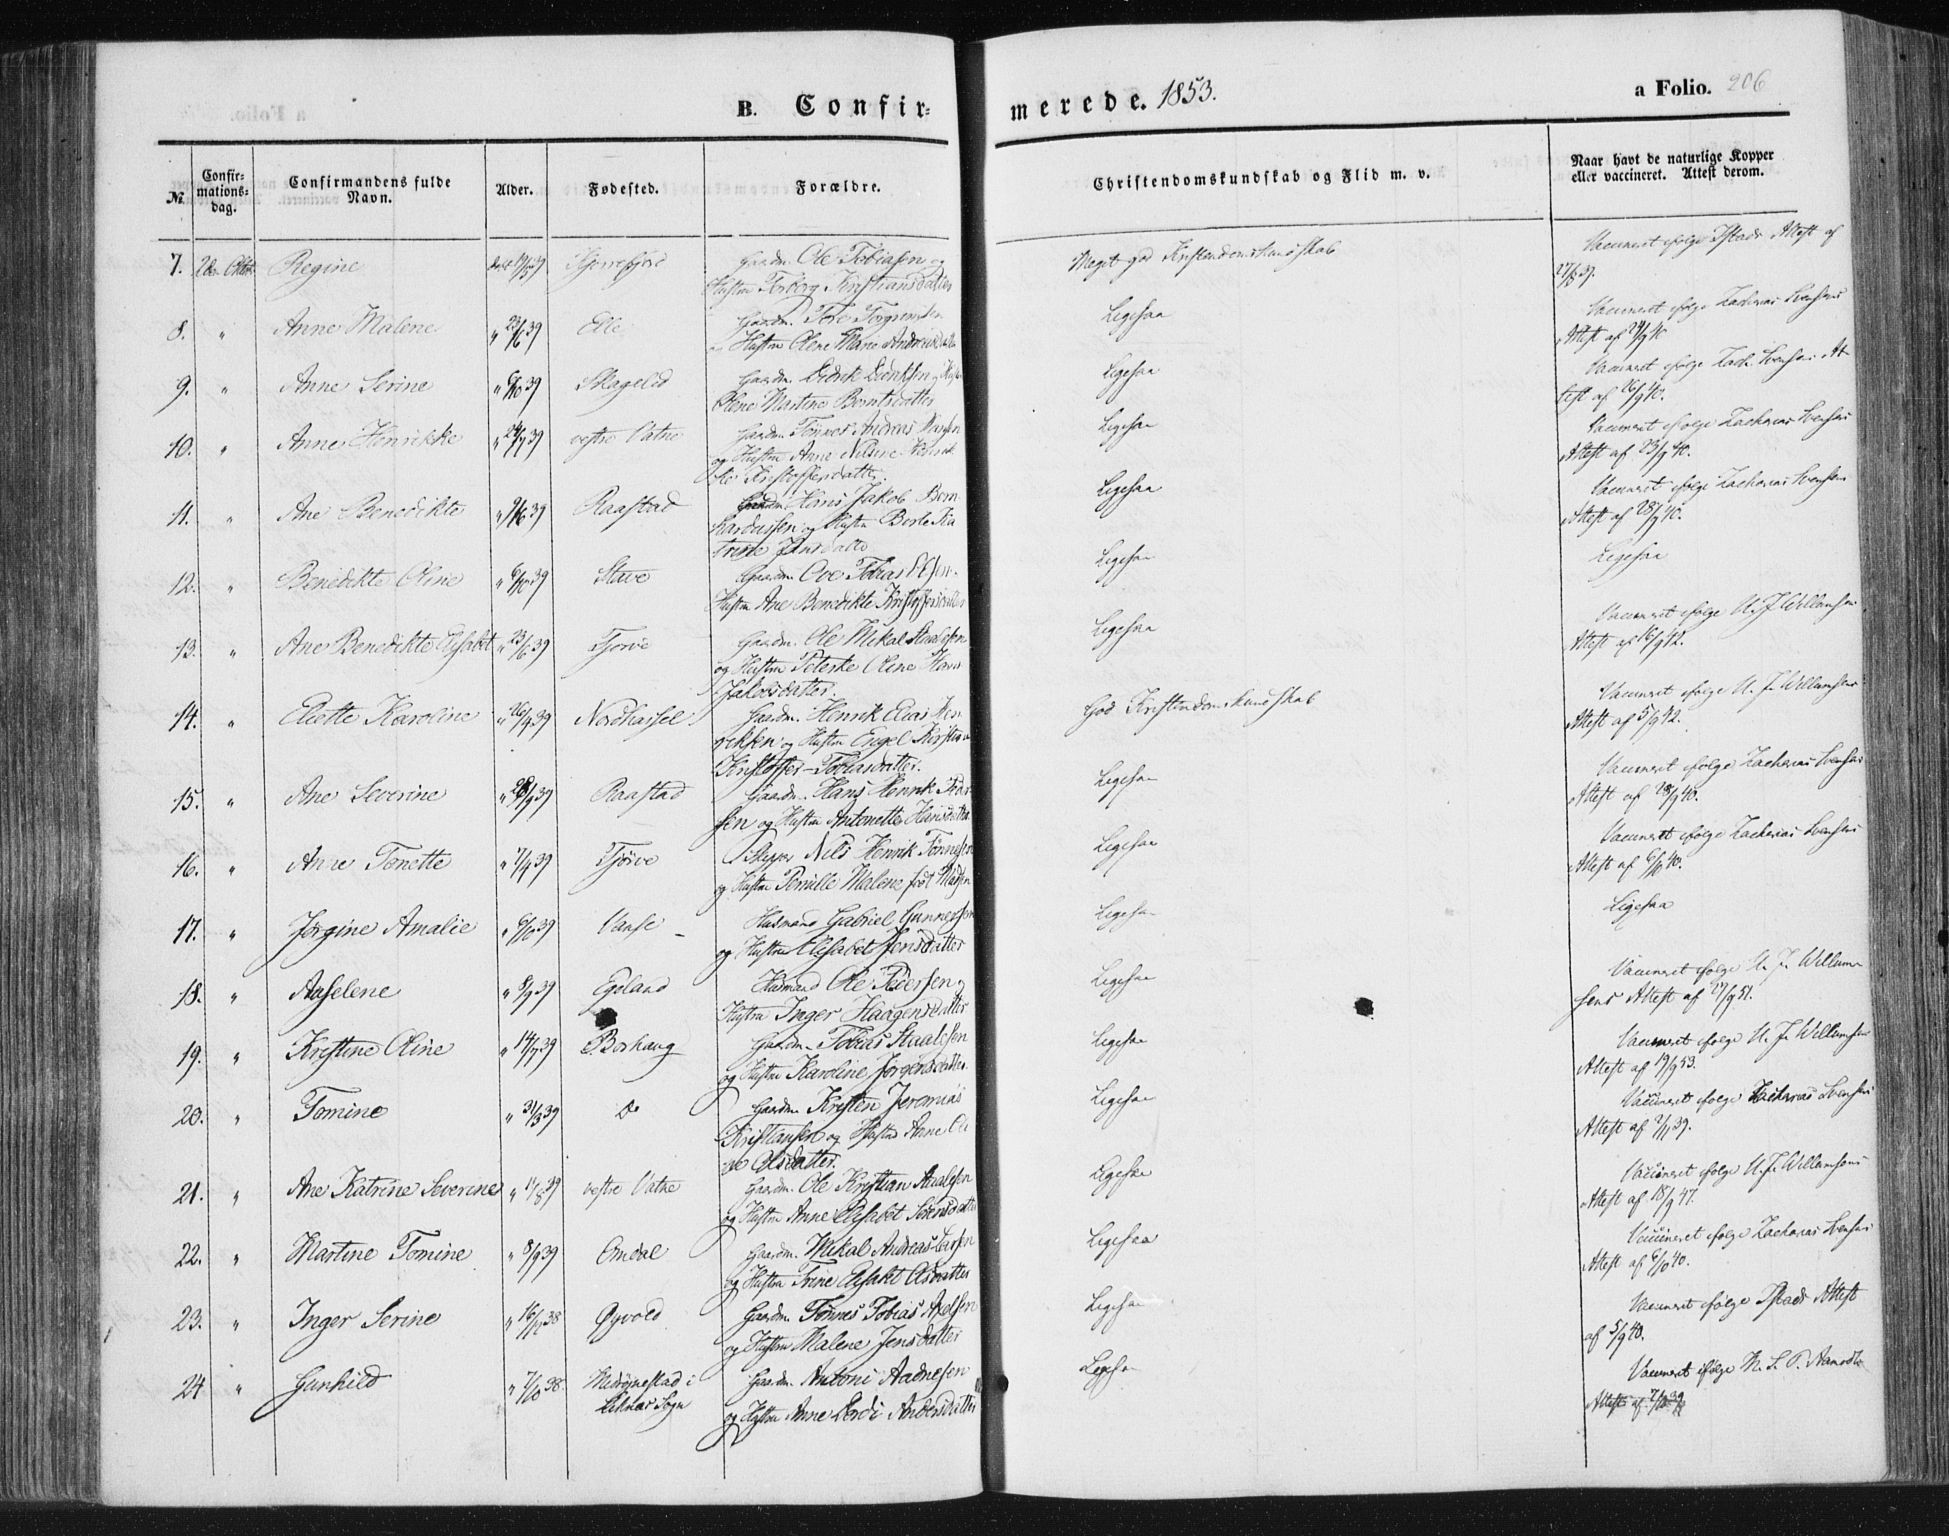 B. Confir-
merede. 1853.
a Folio. 206
№
Confir-
mations-
dag.
Confirmandens fulde
Navn.
Alder.
Fødested.
Forældre.
Christendomskundskab og Flid m. v.
Naar havt de naturlige Kopper
eller vaccineret. Attest derom.
7. Regine Gaardm. Ole Tobiasen og
Hustru Torborg Kristiansdatter
Meget god Kristendomskundskab
Vaccineret ifølge Attest af
8. " Anne Malene " 23/6 39 Elle Gaardm. Tore
Hustru Olene Marie
Ligesaa
Vaccineret ifølge Zacharias Svensens
Attest af 24/9 40
9. " Anne Serine 39 Skageled Gaardm. Didrik Didriksen og Hustru
Olene Martine Berntsdatter
Ligesaa
Vaccineret ifølge Zach. Svensens At-
test af 26/9 40.
10. " Anne Henrikke 39 vestre Vatne Gaardm. Tønnes Andreas
og Hustru Anne Nilsine Henrik-
ke Kristoffersdatter.
Ligesaa
Vaccineret ifølge Zacharias Svensens
Attest af 23/9 40.
11. " Ane Benedikte 39 Raastad Gaardm. Hans Jakob Bern-
hardussen og Hustru Berte Ka-
trine Jansdatter
Ligesaa
Vaccineret ifølge Zacharias Svensens
Attest af 28/9 40.
12. " Benedikte Oline 39 Stave Gaardm. Ove Tobias
Hustru Ane Benedikte Kristoffersdatter
Ligesaa
Ligesaa
13. " Ane Benedikte Elisabet " 23/6 39 Tjørve Gaardm. Ole Mikal Staalesen
og Hustru Peterke Oline Hans
Jakobsdatter.
Ligesaa
Vaccineret ifølge U. J. Willumsens
Attest af 16/9 42.
14. " Eliette Karoline " 26/4 39 Nordhassel Gaardm. Henrik Elias Hen-
riksen og Hustru Engel Kirstine
Kristoffer-Tobiasdatter.
God Kristendomskundskab
Vaccineret ifølge U. J. Willumsens
Attest af 5/9 42.
15. " Ane Severine 39 Raastad Gaardm. Hans Henrik
sen og Hustru Antonette Hansdatter
Ligesaa
Vaccineret ifølge Zacharias Svensens
Attest af 28/9 40.
16. " Anne Tonette " 7/4 39 Tjørve Skipper Nils Henrik Tønnesen
og Hustru Pernille Malene født Madsen
Ligesaa
Vaccineret ifølge Zacharias Svensens
Attest af 6/10 40.
17. " Jørgine Amalie " 6/10 39 Vanse Husmand Gabriel Gunnersen
og Hustru Elisabet Jensdatter
Ligesaa
Ligesaa
18. " Aaselene " 8/9 39 Egeland Husmand Ole Pedersen og
Hustru Inger Haagensdatter
Ligesaa
Vaccineret ifølge U. J. Willum-
sens Attest af 27/9 51.
19. " Kristine Oline " 14/7 39 Borhaug Gaardm. Tobias Staalesen
og Hustru Karoline Jørgensdatter.
Ligesaa
Vaccineret ifølge U. J. Willumsens
Attest af 19/9 53.
20. " Tomine " 31/3 39 Do Gaardm. Kristen Jeremias
Kristiansen og Hustru Anne Oli-
ne Olsdatter.
Ligesaa
Vaccineret ifølge Zacharias Svensens
Attest af 2/11 39.
21. " Ane Katrine Severine 39 vestre Vatne Gaardm. Ole Kristian Staalesen
og Hustru Anne Elisabet Sørensdatter
Ligesaa
Vaccineret ifølge U. J. Willumsens
Attest af 18/9 47.
22. " Martine Tomine " 8/9 39 Omdal Gaardm. Mikal Andreas Larsen
og Hustru Trine Elisabet Olsdatter
Ligesaa
Vaccineret ifølge Zacharias Svensens
Attest af 6/10 40.
23. " Inger Serine 38 Øyvold Gaardm. Tønnes Tobias Axelsen
og Hustru Malene Jensdatter
Ligesaa
Vaccineret ifølge Attest
af 5/9 40.
24 " Gunhild " 7/10 38 i
Sogn Gaardm. Antoni Aadnesen
og Hustru Anne Andersdatter
Ligesaa
Vaccineret ifølge
Attest af